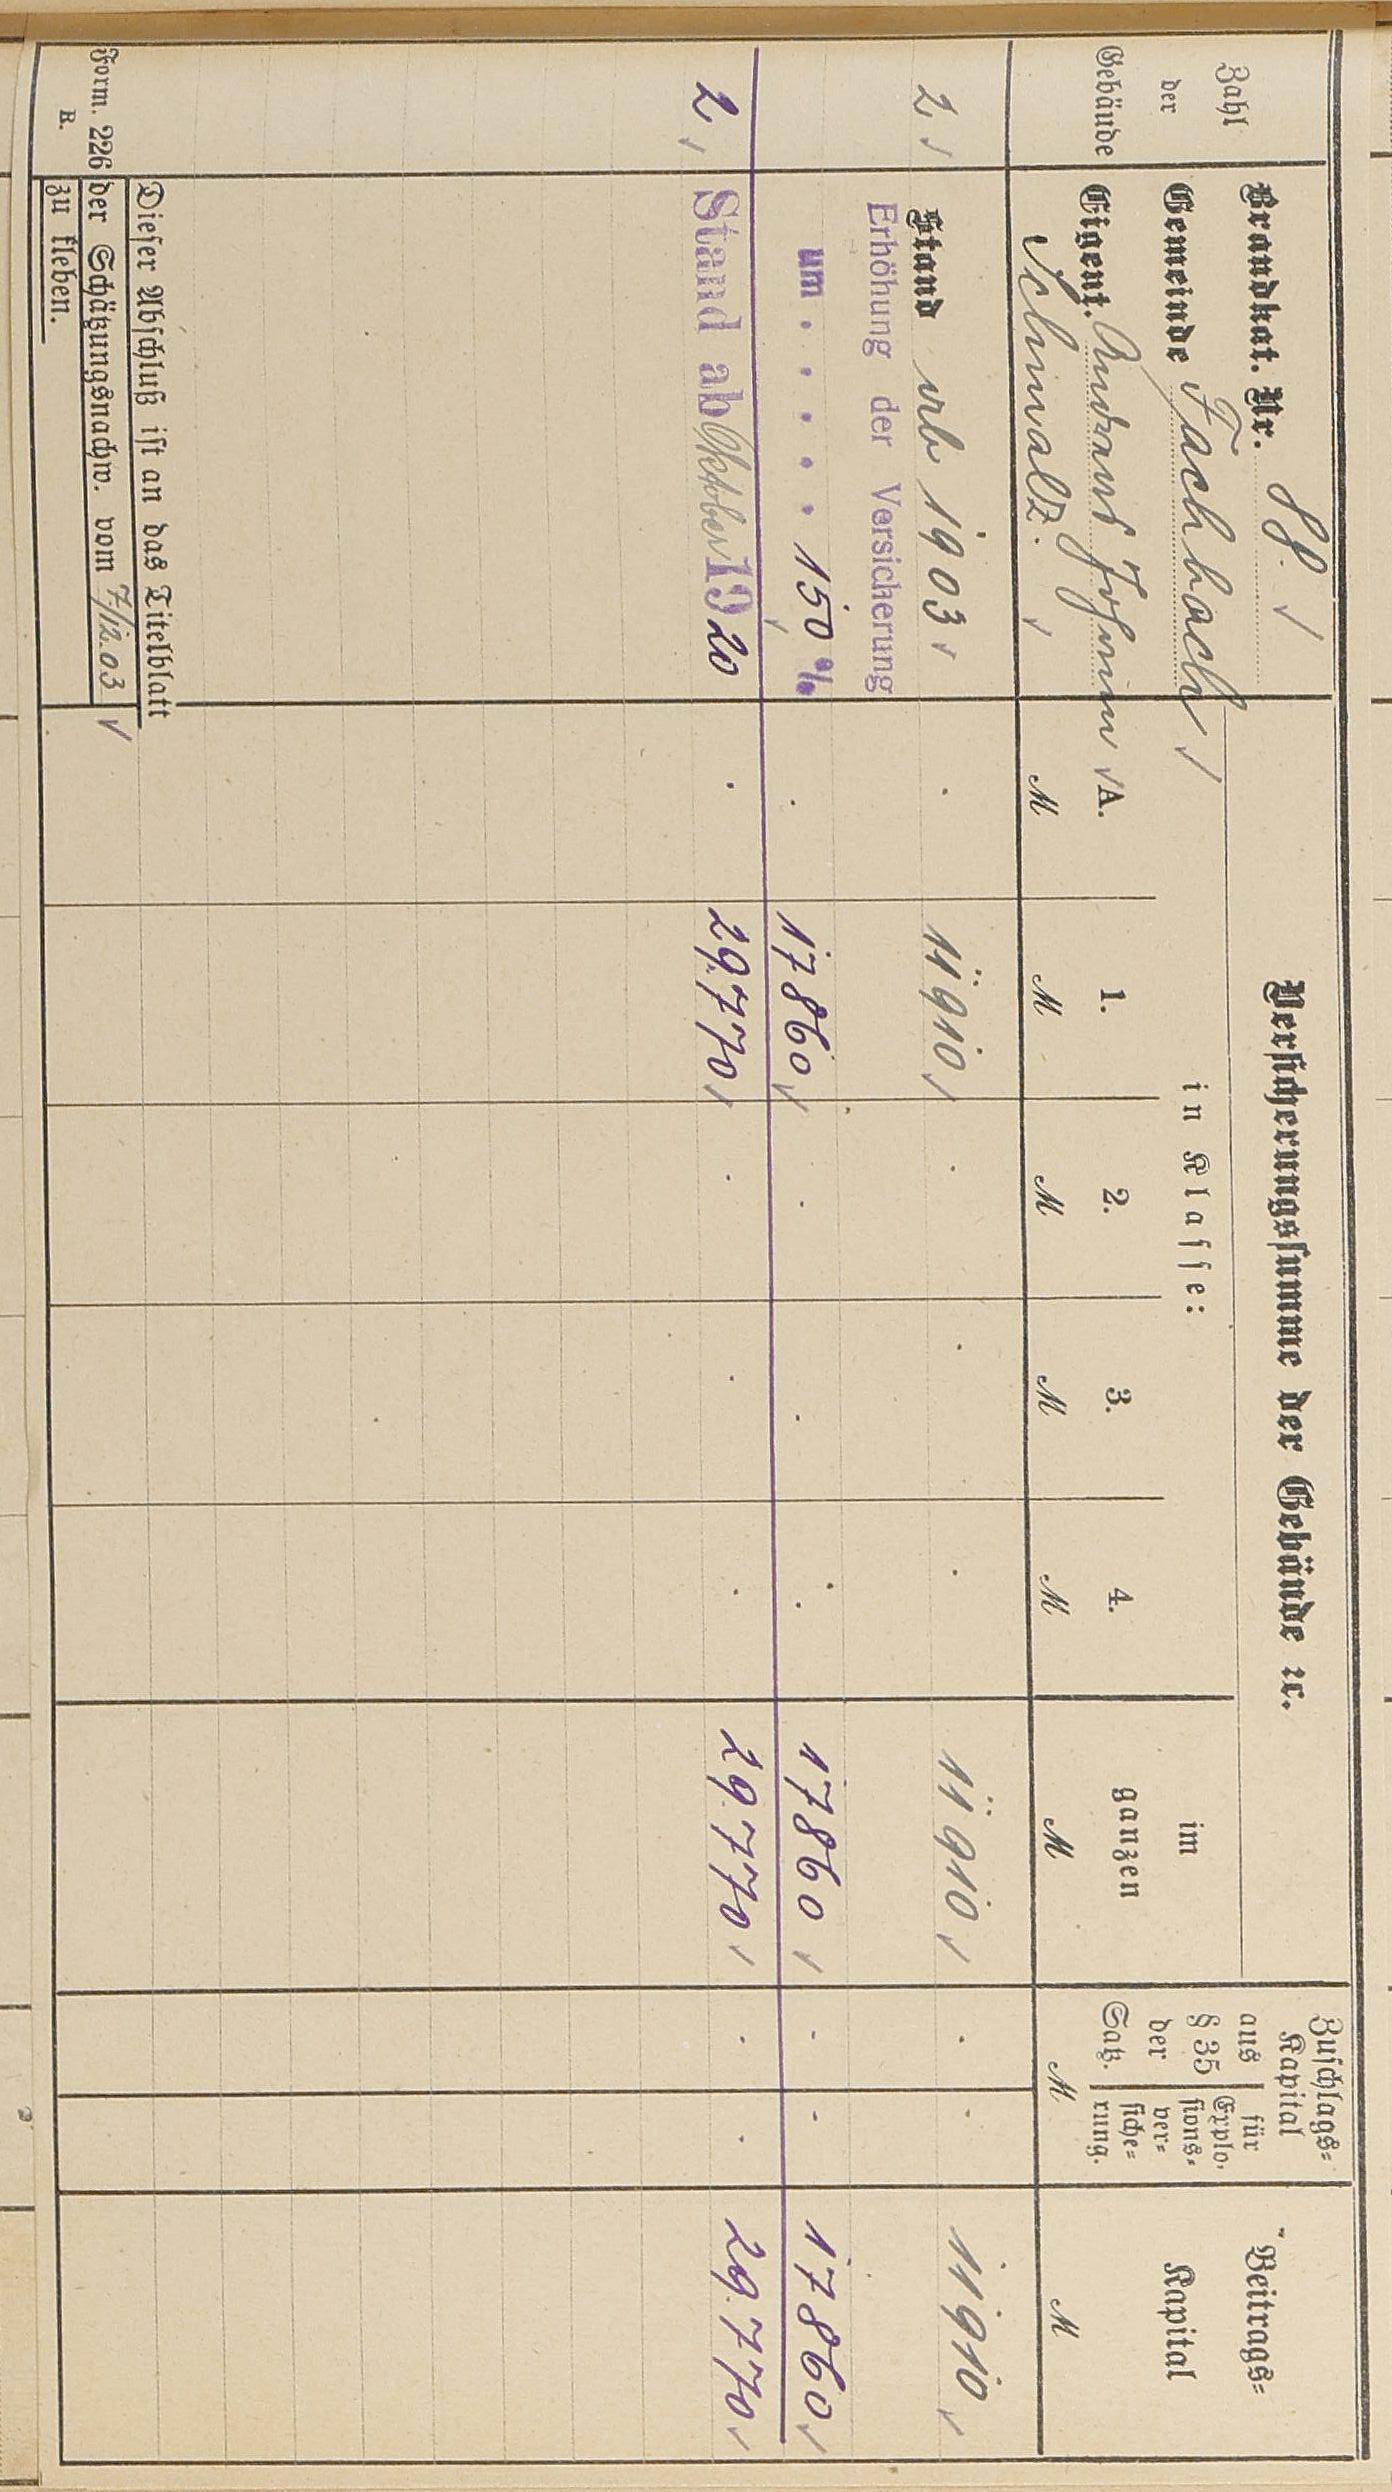 Zahl
der
Gebäude
Brandkat. Nr.
Gemeinde Fachbach
Eigent.
Versicherungssumme der Gebäude ꝛc.
in Klasse:
A. 1. 2. 3. 4.
im
ganzen
Zuschlags-
Kapital
aus
§ 35
der
Satz.
für
Explo-
sions-
ver-
siche-
rung.
Beitrags-
Kapital
M M M M M M M M
2 Stand ab 1903 . 11910 . . . 11910 . . 11910
Erhöhung der Versicherung
um . . . . . 150 % . 17860 . . . 17860 . . 17860
2 Stand ab Oktober 1920 . 29.770 . . . 29.770 . . 29.770
Dieser Abschluß ist an das Titelblatt
Form. 226 der Schätzungsnachw. vom 7/12.03
R. zu kleben.